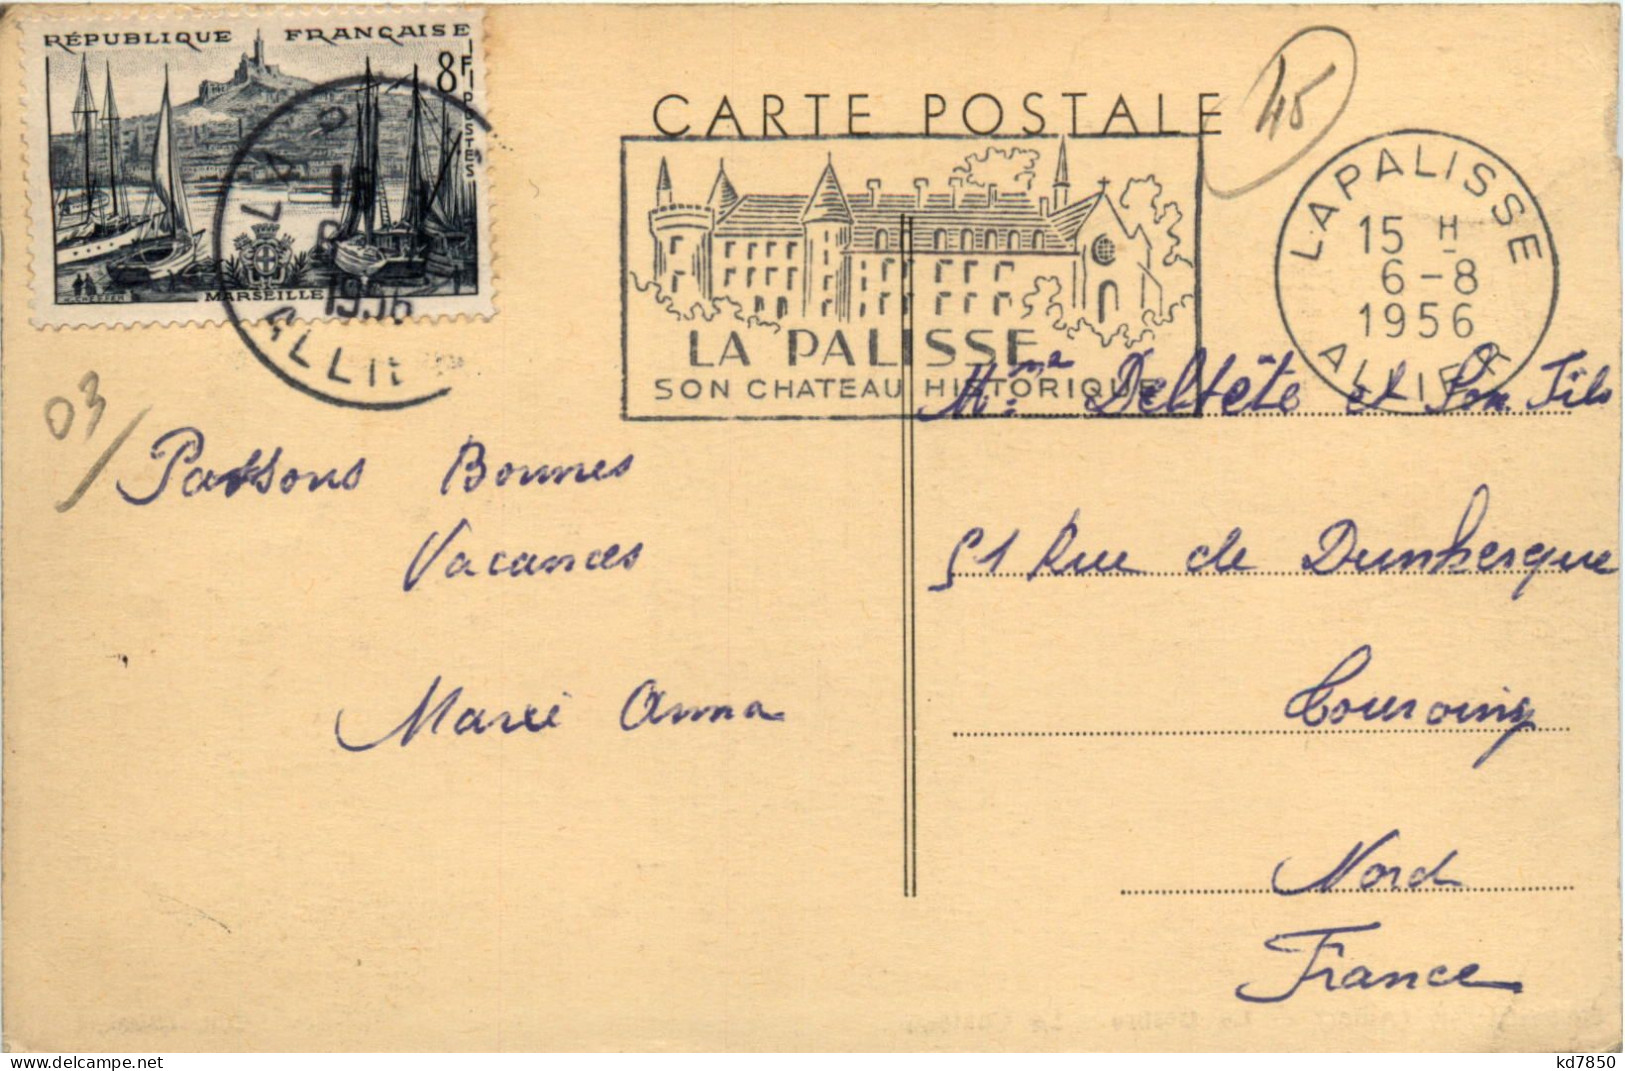 RÉPUBLIQUE FRANÇAISE
8F
POSTES
MARSEILLE
1956
ALLIE
CARTE POSTALE
45
LAPALISSE
15 H
6-8
1956
ALLIER
LA PALISSE
SON CHATEAU HISTORIQUE
03/
Passons Bonnes
Vacances
Marie Anna
Mme Deltête et Son Fils
51 Rue de Dunkerque
Tourcoing
Nord
France
kd7850